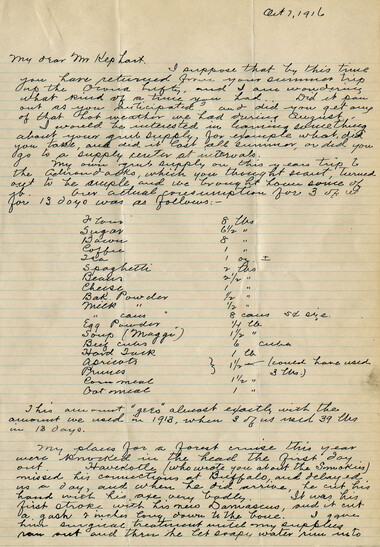 Oct 7, 1916
My dear Mr Kephart.
I suppose that by this time
you have returned from your summer trip
up the and I am wondering
what kind of a time you had. Did it pan
out as you anticipated and did you get any
of that hot weather we had during August.
I would be interested in learning something
about your grub supply, for example what did
you take, and did it last all summer or did you
go to a supply center at intervals.
My own grub supply on this years trip to
the Adirondacks, which you thought scant, turned
out to be ample, and we brought home some of
it. Our actual consumption for 3 of us
for 13 days was as follows:-
Flour 8 lbs
Sugar 6 1/2 "
Bacon 8 "
Coffee 1 "
Tea 1 oz ±
Spaghetti 2 lbs
Beans 2 1/2 "
Cheese 1 "
Bak Powder 1/2 "
Milk 1/2 "
" cans 8 cans 5¢ size
Egg Powder 1/4 lb
Soup (Maggi) 1 1/2 "
Beef cubes 6 cubes
Hard Tuck 1 lb
Apricots } 1 1/2 — (could have used
Prunes 3 lbs.)
Corn meal 1 1/2 "
Oat meal 1 "
This amount "jibes" almost exactly with the
amount we used in 1913, when 3 of us used 39 lbs
in 13 days.
My plans for a forest cruise this year
were knocked in the head the first day
out. (who wrote you about the Smokies)
missed his connections at Buffalo, and delayed
us a day, and when he did arrive, he cut his
hand with his axe very badly. It was his
first stroke with his new Damascus, and it cut
a gash 2 inches long, down to the bone. I gave
him surgical treatment until my supplies
ran out and then he let soapy water run into